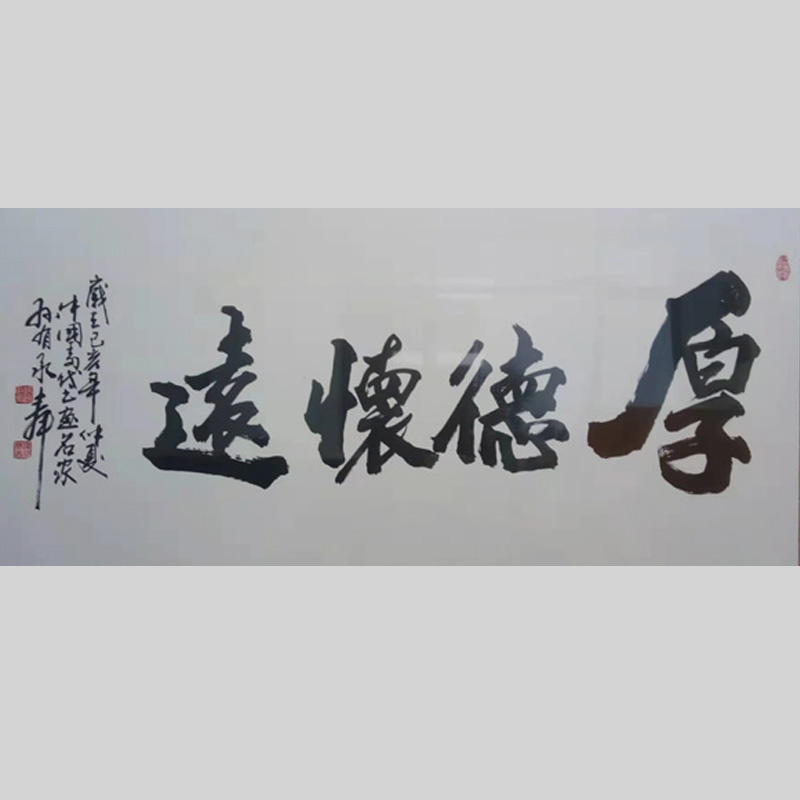 厚德懷遠
歲在己亥年仲夏
中國當代書畫名家